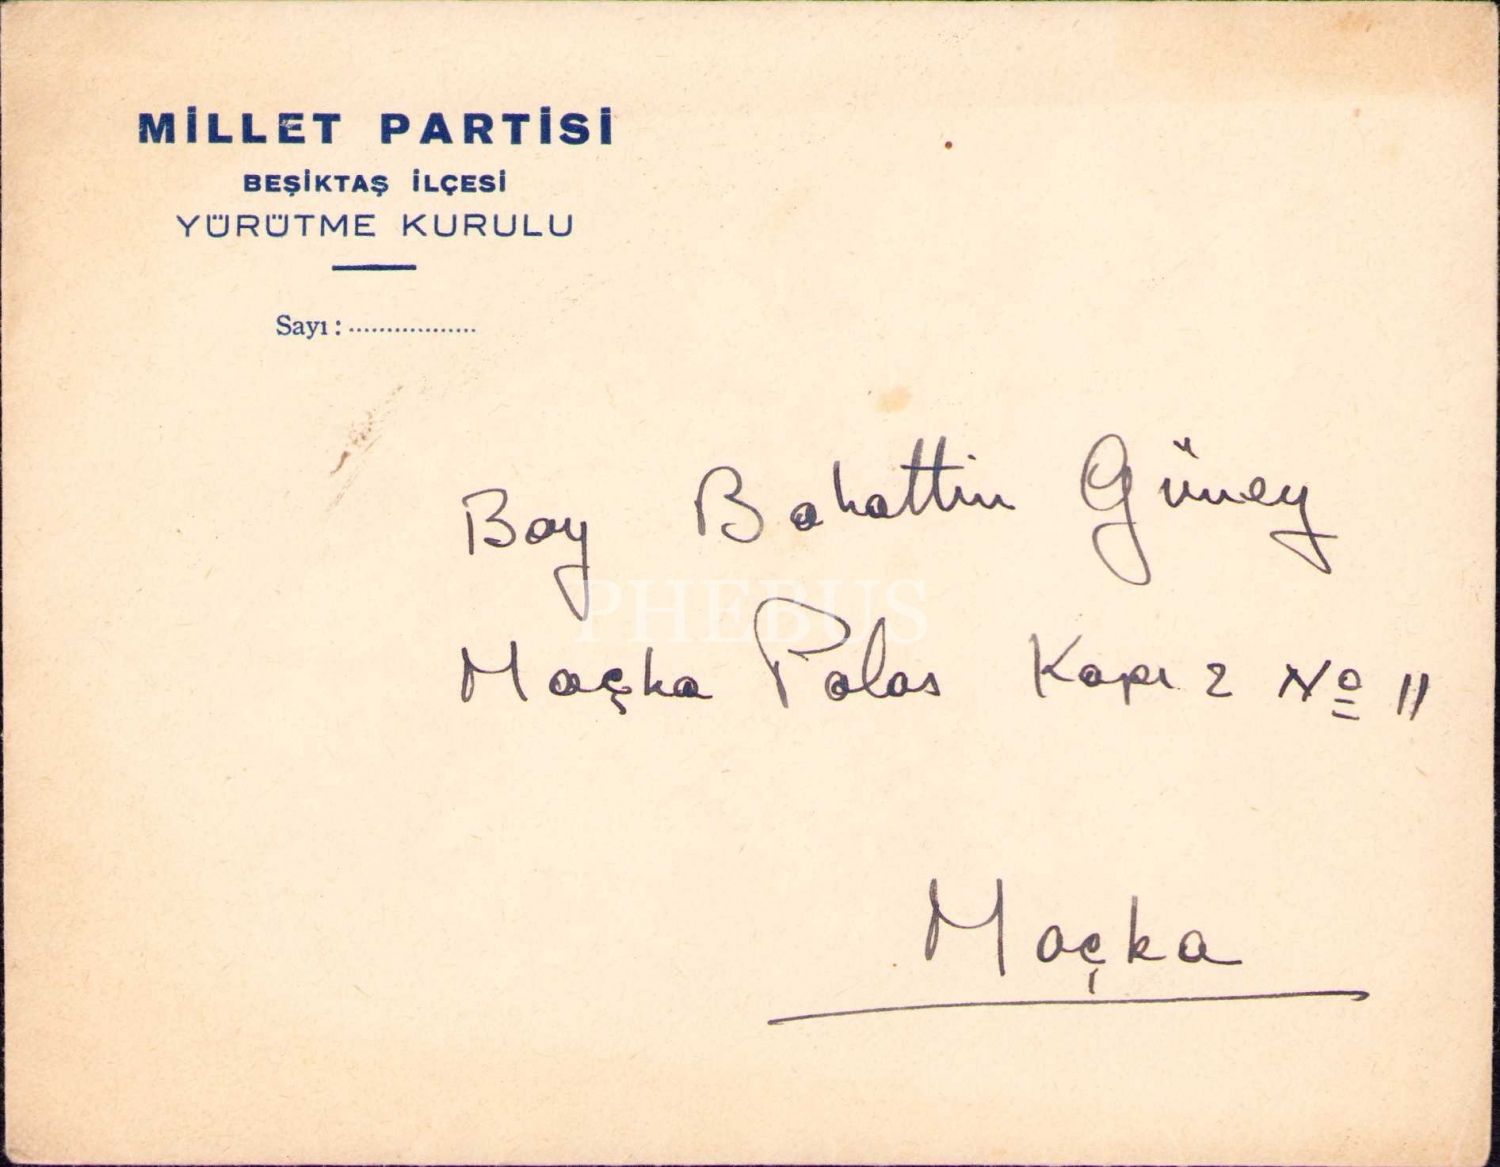 MİLLET PARTİSİ
BEŞİKTAŞ İLÇESİ
YÜRÜTME KURULU
Sayı : .................
Bay Bahattin Güney
PHEBUS
Maçka Palas Kapı 2 No 11
Maçka